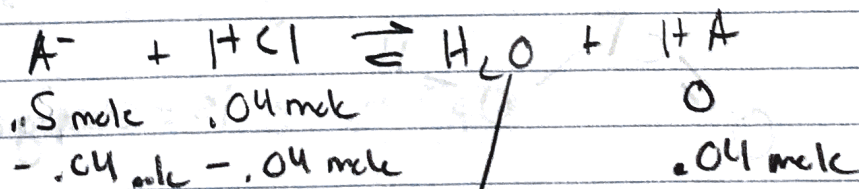 A⁻ + HCl ⇌ H₂O + HA
.5 mole .04 mole 0
- .04 mole - .04 mole .04 mole